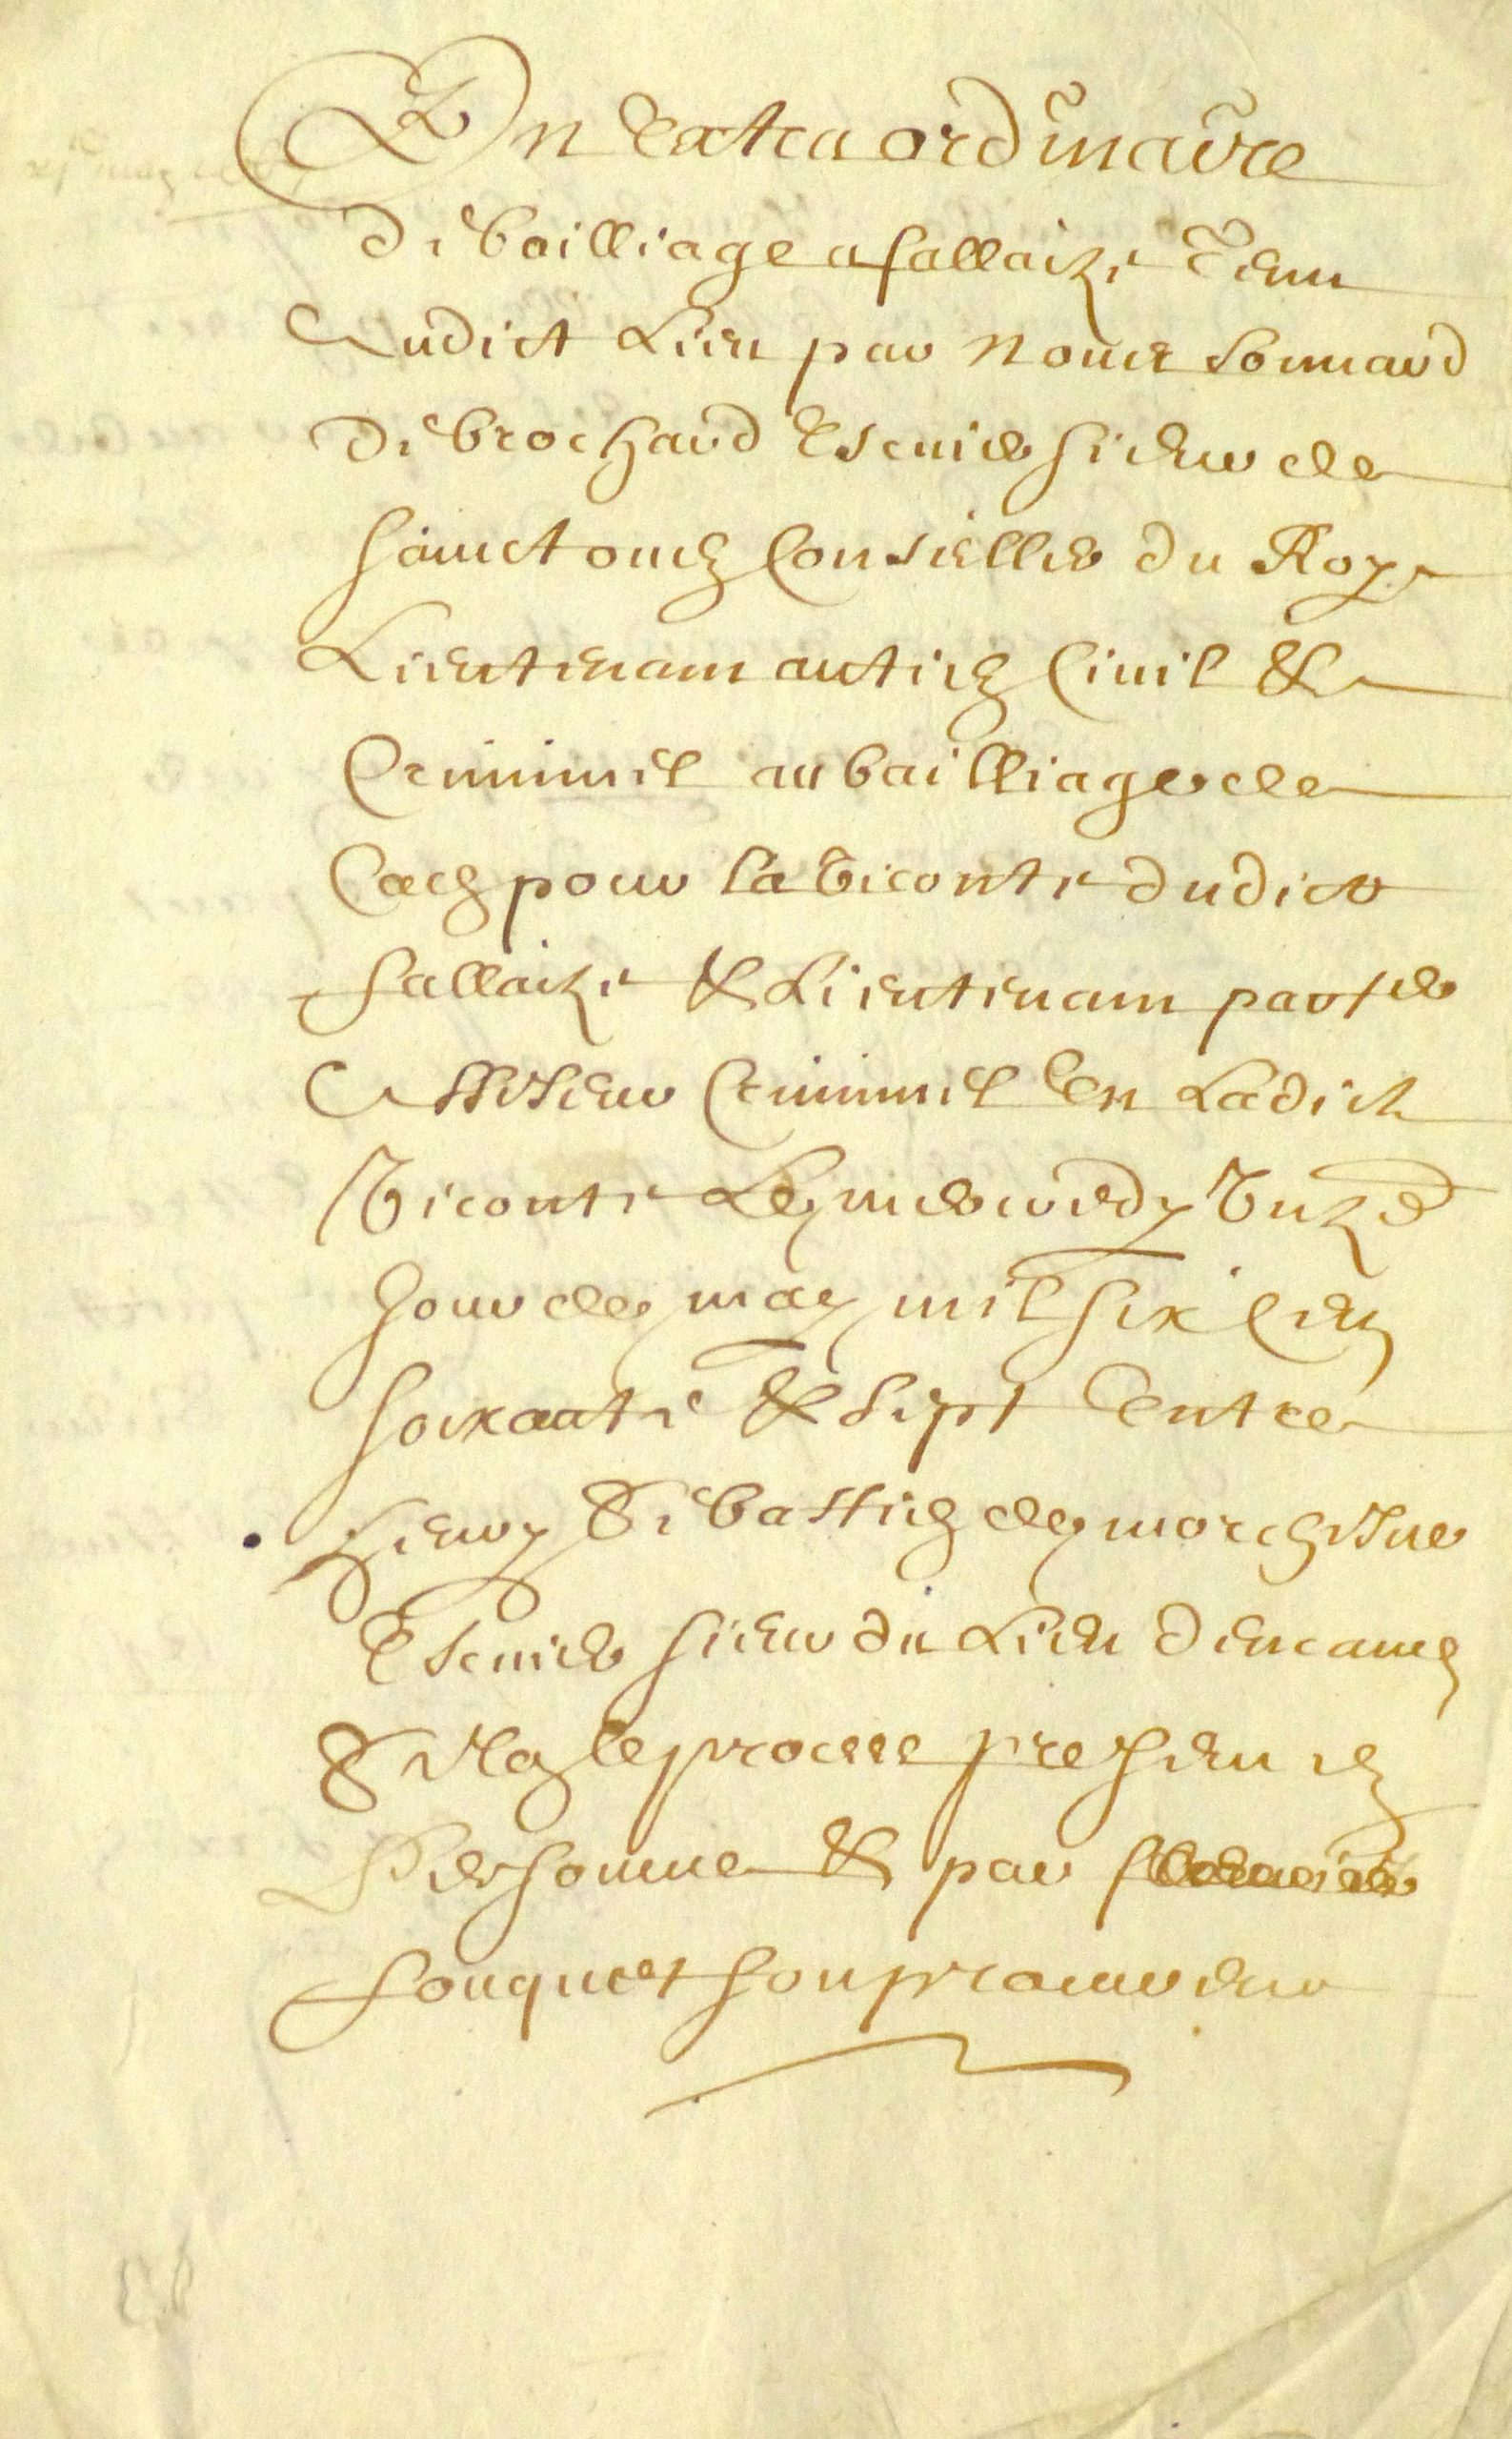 En Lextraordinaire
de bailliage a fallaize Tenu
Audict Lieu par nous
de brochard Escuier sieur de
Sainct ouen Conseiller du Roy
Lieutenant antien Civil &
Criminel au bailliage de
Caen pour la Viconte dudict
fallaize & Lieutenant parter
Assesseur Criminel En Ladicte
Viconte Le mercredy Unze
Jour de may mil six Cens
soixante & Sept Entre
Henry Sebastien de morchesne
Escuier sieur du Lieu
le procese present en
Personne & par
fouquet son procureur